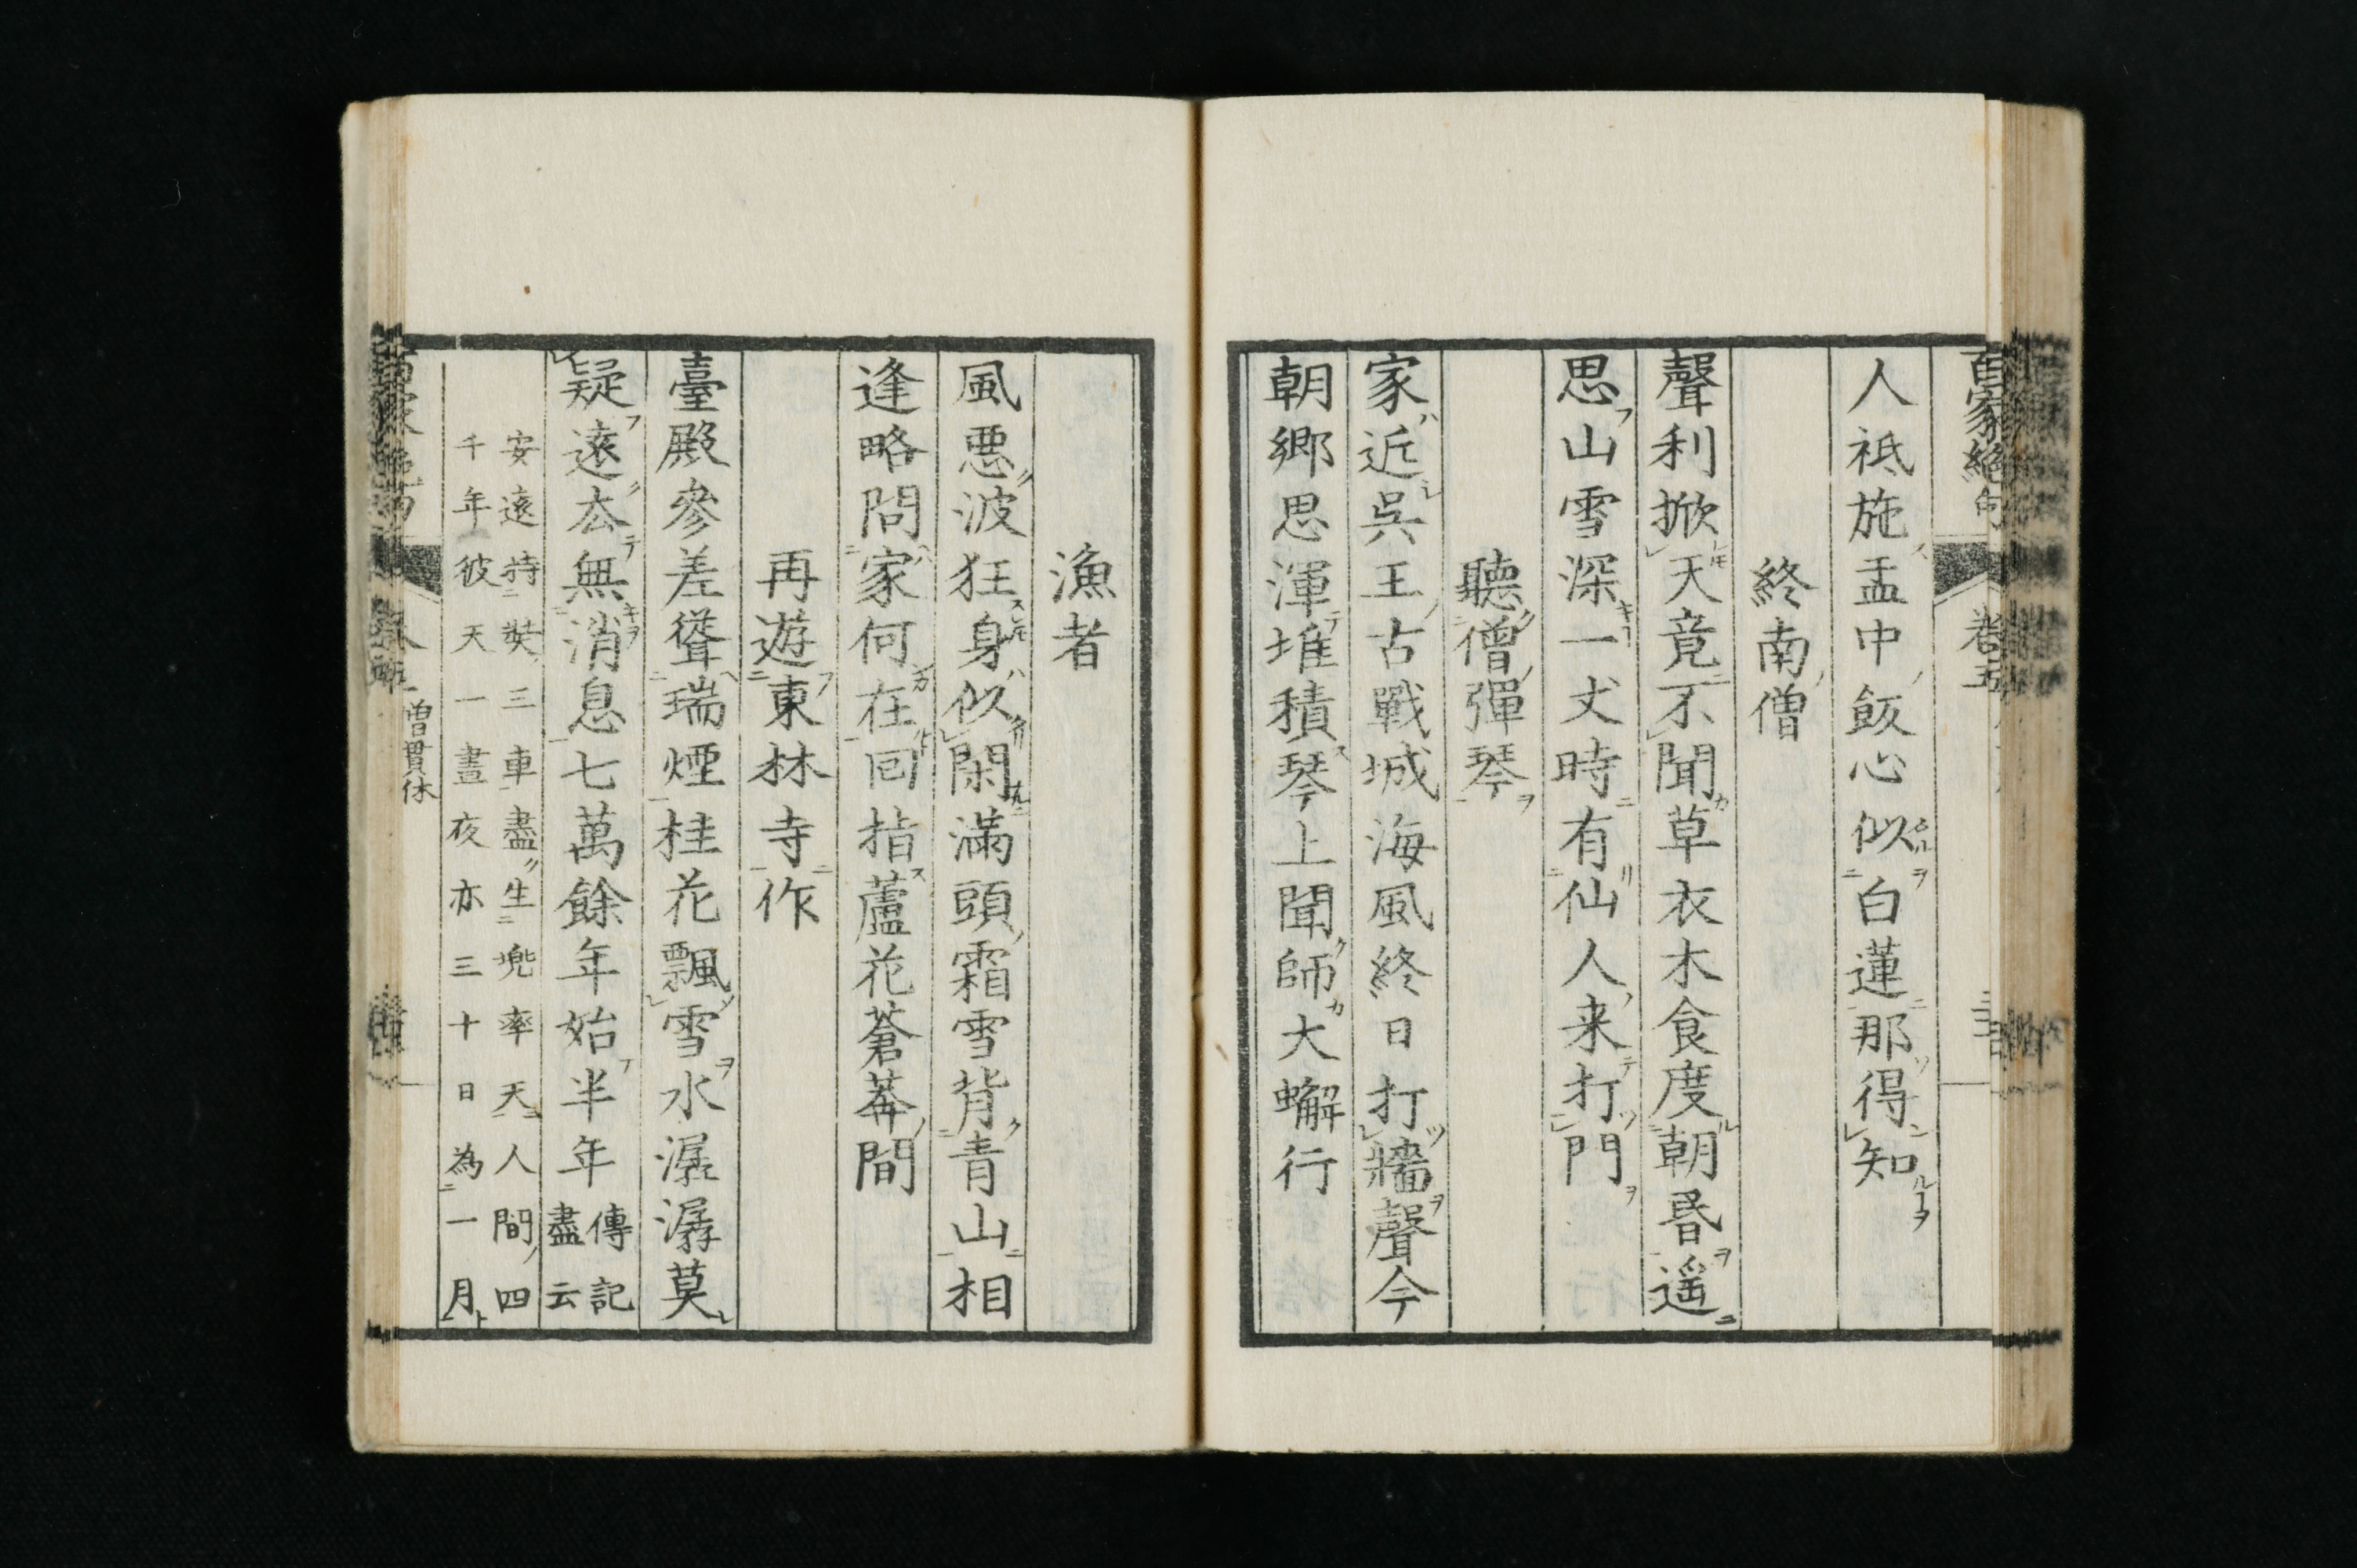 百家絶句
卷五
人祗施盂中飯心似白蓮那得知
終南僧
聲利掀天竟不聞草衣木食度朝昏遥
思山雪深一丈時有仙人来打門
聽僧彈琴
家近呉王古戰城海風終日打牆聲今
朝鄉思渾堆積琴上聞師大蠏行
漁者
風悪波狂身似閑滿頭霜雪背青山相
逢略問家何在回指蘆花蒼莽間
再遊東林寺作
臺殿參差聳瑞煙桂花飄雪水潺潺莫
疑遠去無消息七萬餘年始半年傳記
盡云
安遠持奘三車盡生兠率天人間四
千年彼天一晝夜亦三十日為一月
僧貫休